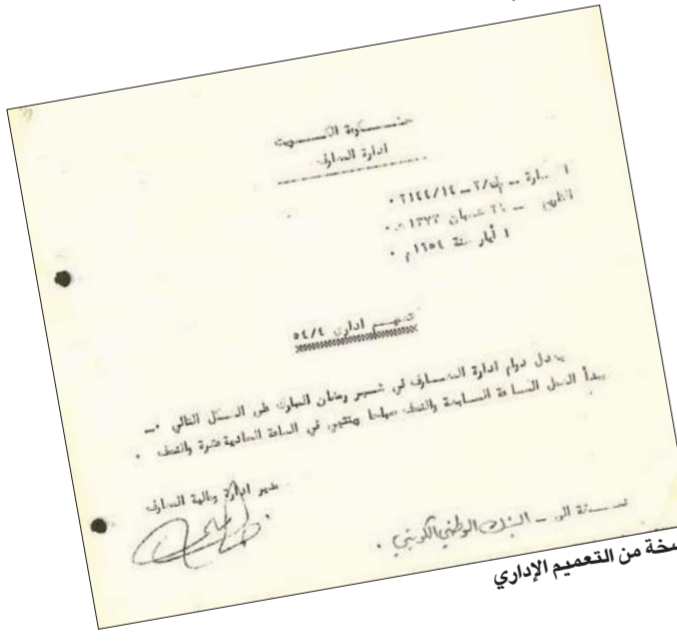 حكومة الكويت
ادارة المعارف
٢١٤٤/١٤
شعبان ١٣٧٣ هـ
١ أيار سنة ١٩٥٤م
تعميم اداري ٥٤/٤
يعدل دوام ادارة المعارف في شهر رمضان المبارك على الشكل التالي :ـ
يبدأ العمل الساعة السابعة والنصف صباحا وينتهي في الساعة الحادية عشرة والنصف .
مدير ادارة ومالية المعارف
نسخة الى ـ البنك الوطني الكويتي .
سخة من التعميم الإداري